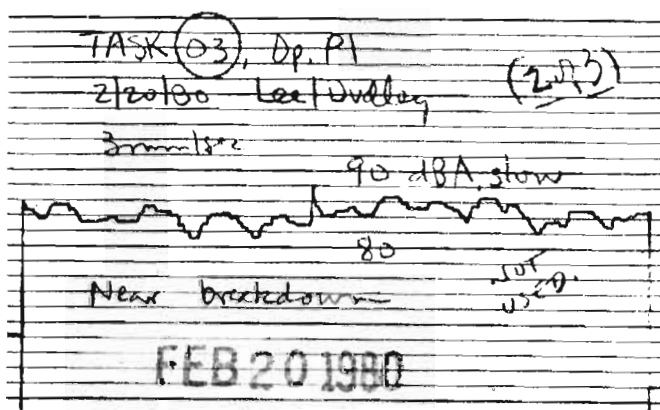 TASK 03, Op. P1
(2 of 3)
2/20/80 Lee/
3mm/sec
90 dBA, slow
80
NOT
USED.
Near breakdown
FEB 20 1980